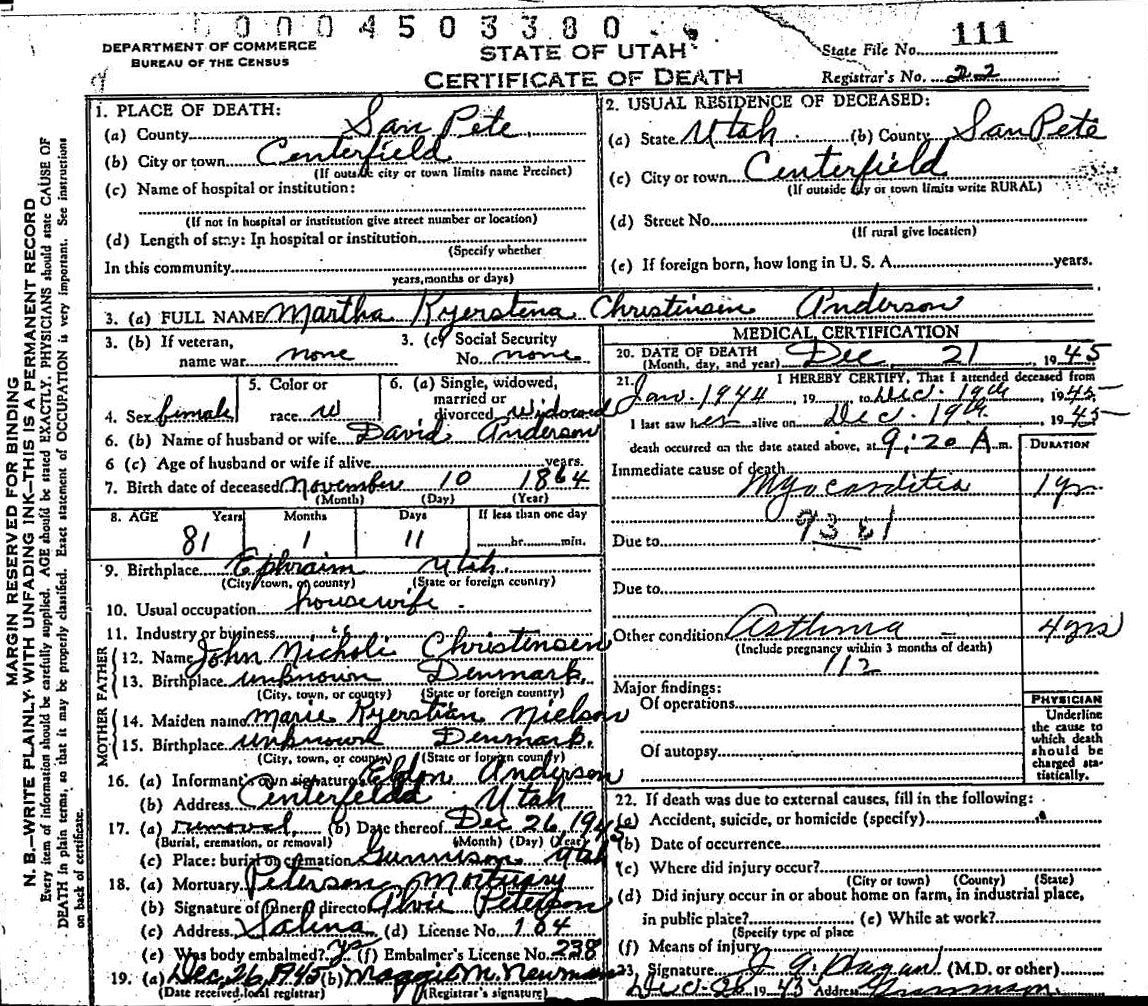 0 0 0 4 5 0 3 3 8 0
DEPARTMENT OF COMMERCE
BUREAU OF THE CENSUS
STATE OF UTAH
CERTIFICATE OF DEATH
State File No. 111
Registrar's No. 22
MARGIN RESERVED FOR BINDING
N. B.—WRITE PLAINLY WITH UNFADING INK—THIS IS A PERMANENT RECORD
Every item of information should be carefully supplied. AGE should be stated EXACTLY. PHYSICIANS should state CAUSE OF
DEATH in plain terms, so that it may be properly classified. Exact statement of OCCUPATION is very important. See instructions
on back of certificate.
1. PLACE OF DEATH:
(a) County San Pete
(b) City or town Centerfield
(If outside city or town limits name Precinct)
(c) Name of hospital or institution:
(If not in hospital or institution give street number or location)
(d) Length of stay: In hospital or institution
(Specify whether
In this community
years, months or days)
2. USUAL RESIDENCE OF DECEASED:
(a) State Utah (b) County San Pete
(c) City or town Centerfield
(If outside city or town limits write RURAL)
(d) Street No.
(If rural give location)
(e) If foreign born, how long in U. S. A. years.
3. (a) FULL NAME Martha Kyerstena Christensen Anderson
3. (b) If veteran,
name war none
3. (c) Social Security
No. none
4. Sex female
5. Color or
race w
6. (a) Single, widowed,
married or
divorced widowed
6. (b) Name of husband or wife David Anderson
6 (c) Age of husband or wife if alive years.
7. Birth date of deceased November 10 1864
(Month) (Day) (Year)
8. AGE Years Months Days If less than one day
81 1 11 hr. min.
9. Birthplace Ephraim Utah
(City, town, or county) (State or foreign country)
10. Usual occupation housewife
11. Industry or business " "
FATHER
12. Name John Nicholi Christensen
13. Birthplace unknown Denmark
(City, town, or county) (State or foreign country)
MOTHER
14. Maiden name Marie Kyerstian Nielson
15. Birthplace unknown Denmark.
(City, town, or county) (State or foreign country)
16. (a) Informant's own signature Eldon Anderson
(b) Address Centerfeldd Utah
17. (a) removal (b) Date thereof Dec 26 1945
(Burial, cremation, or removal) (Month) (Day) (Year)
(c) Place: burial or cremation Gunnison Utah
18. (a) Mortuary Peterson Mortuary
(b) Signature of funeral director Alvie Peterson
(c) Address Salina (d) License No. 184
(e) Was body embalmed? yes (f) Embalmer's License No. 238
19. (a) Dec, 26, 1945 (b) Maggie M. Newman
(Date received local registrar) (Registrar's signature)
MEDICAL CERTIFICATION
20. DATE OF DEATH Dec. 21 1945
(Month, day, and year)
21. I HEREBY CERTIFY, That I attended deceased from
Jan. 1944, 19 to Dec. 19th 1945
I last saw her alive on Dec. 19th 1945
death occurred on the date stated above, at 9:20 A m.
DURATION
Immediate cause of death
Myocarditis 1 yr
93
Due to
Due to
Other condition Asthma 4 yrs
(Include pregnancy within 3 months of death)
112
Major findings:
Of operations
Of autopsy
PHYSICIAN
Underline
the cause to
which death
should be
charged sta-
tistically.
22. If death was due to external causes, fill in the following:
(a) Accident, suicide, or homicide (specify)
(b) Date of occurrence
(c) Where did injury occur?
(City or town) (County) (State)
(d) Did injury occur in or about home on farm, in industrial place,
in public place? (e) While at work?
(Specify type of place
(f) Means of injury
23. Signature J. G. Hagan (M.D. or other)
Dec. 26 1945 Address Gunnison